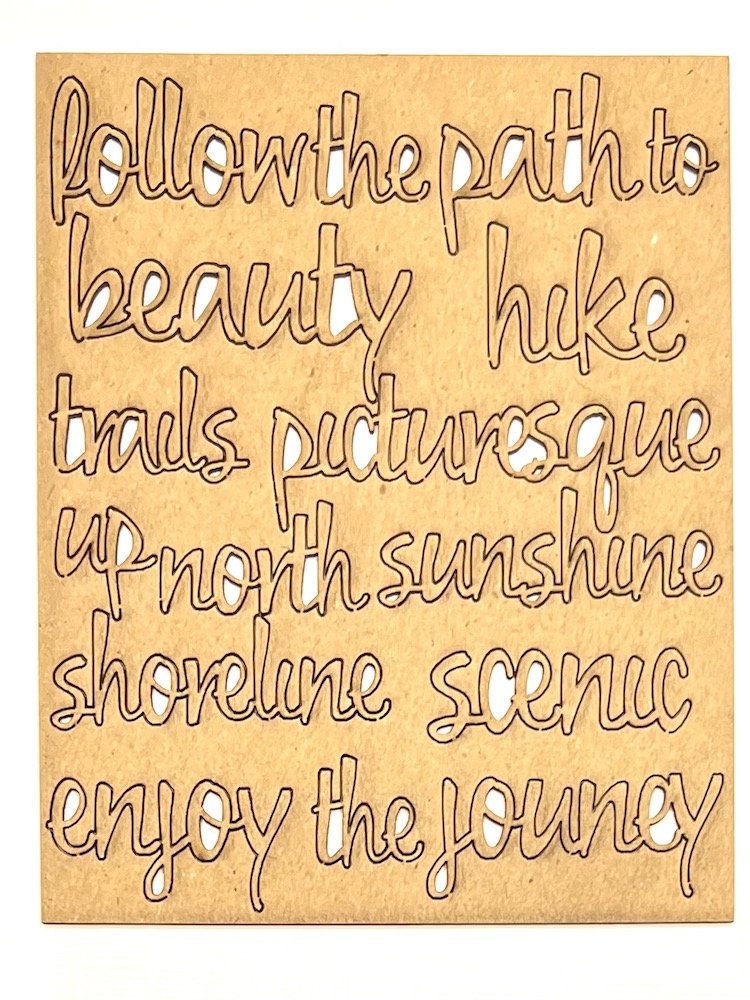 follow the path to
beauty hike
trails picturesque
up north sunshine
shoreline scenic
enjoy the jouney